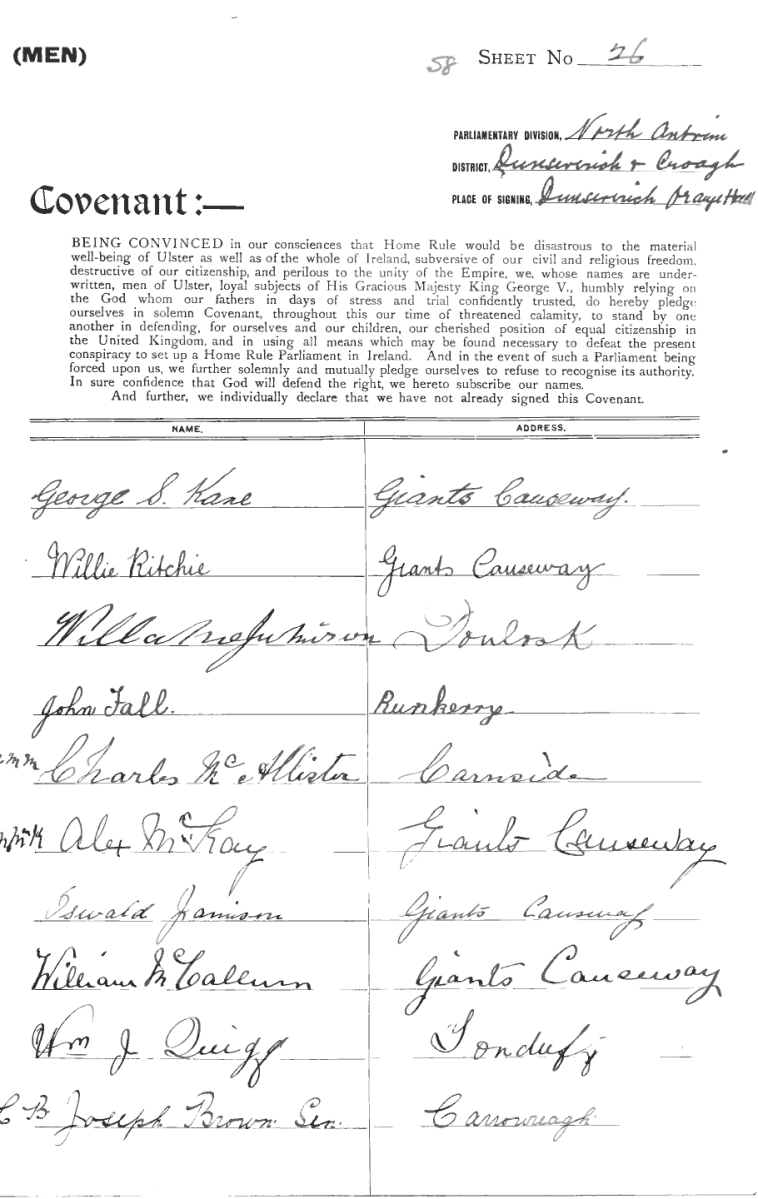 (MEN)
58 SHEET No 26
PARLIAMENTARY DIVISION, North Antrim
DISTRICT, Dunseverick & Croagh
PLACE OF SIGNING, Dunseverick Orange Hall
Covenant :—
BEING CONVINCED in our consciences that Home Rule would be disastrous to the material
well-being of Ulster as well as of the whole of Ireland, subversive of our civil and religious freedom,
destructive of our citizenship, and perilous to the unity of the Empire, we, whose names are under-
written, men of Ulster, loyal subjects of His Gracious Majesty King George V., humbly relying on
the God whom our fathers in days of stress and trial confidently trusted, do hereby pledge
ourselves in solemn Covenant, throughout this our time of threatened calamity, to stand by one
another in defending, for ourselves and our children, our cherished position of equal citizenship in
the United Kingdom, and in using all means which may be found necessary to defeat the present
conspiracy to set up a Home Rule Parliament in Ireland. And in the event of such a Parliament being
forced upon us, we further solemnly and mutually pledge ourselves to refuse to recognise its authority.
In sure confidence that God will defend the right, we hereto subscribe our names.
And further, we individually declare that we have not already signed this Covenant.
NAME. ADDRESS.
George S. Kane Giants Causeway.
Willie Ritchie Giants Causeway
John Fall. Runkerry
Charles McAllister Carnside
Alex McKay Giants Causeway
Oswald Jamison Giants Causeway
William McCallum Giants Causeway
Wm J Quigg
C B Joseph Brown Sen. Carrowreagh